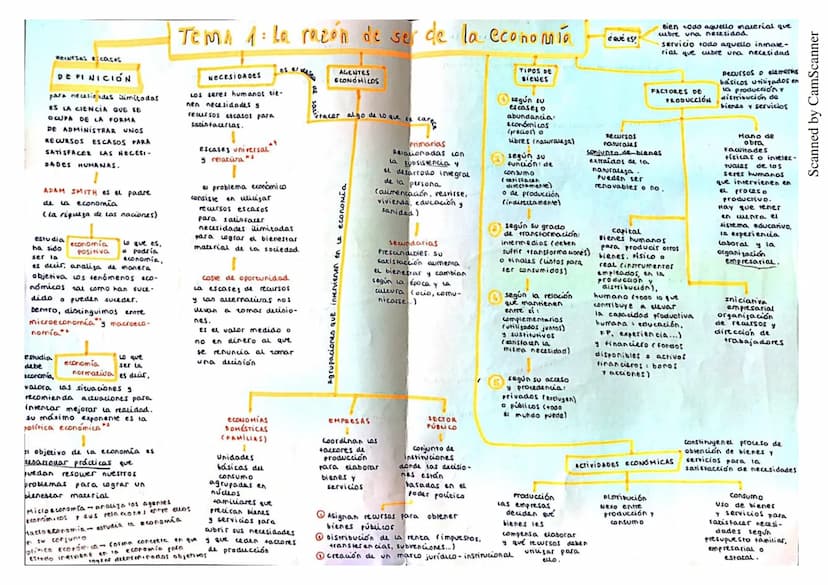 TEMA 1: La razón de ser de la economía
¿qué es?
bien todo aquello material que
cubre una necesidad
servicio todo aquello inmate-
rial que cubre una necesidad
recursos escasos
DEFINICIÓN
para necesidades ilimitadas
ES LA CIENCIA QUE SE
OCUPA DE LA FORMA
DE ADMINISTRAR UNOS
RECURSOS ESCASOS PARA
SATISFACER LAS NECESI-
DADES HUMANAS.
ADAM SMITH es el padre
de la economía
(la riqueza de las naciones)
estudia economía positiva lo que es,
ha sido o podría
ser la economía,
es decir, analiza de manera
objetiva los fenómenos eco-
nómicos tal como han suce-
dido o pueden suceder.
Dentro, distinguimos entre
microeconomía y macroeco-
nomía.
estudia economía normativa lo que
debe ser la
economía, es decir,
valora las situaciones y
recomienda actuaciones para
intentar mejorar la realidad.
Su máximo exponente es la
política económica
El objetivo de la economía es
desarrollar prácticas que
puedan resolver nuestros
problemas para lograr un
bienestar material
Microeconomía → analiza los agentes
económicos y sus relaciones entre ellos
Macroeconomía → estudia la economía
en su conjunto
política económica → forma concreta en que
estado interviene en la economía para
lograr determinados objetivos
NECESIDADES
es el deseo de
Los seres humanos tie-
nen necesidades y
recursos escasos para
satisfacerlas.
escasez universal
y relativa
El problema económico
consiste en utilizar
recursos escasos
para satisfacer
necesidades ilimitadas
para lograr el bienestar
material de la sociedad.
coste de oportunidad
La escasez de recursos
y las alternativas nos
llevan a tomar decisio-
nes.
Es el valor medido o
no en dinero al que
se renuncia al tomar
una decisión
satisfacer algo de lo que se carece
primarias
Relacionadas con
la subsistencia y
el desarrollo integral
de la persona
(alimentación, vestirse,
vivienda, educación y
sanidad)
secundarias
Prescindibles. Su
satisfacción aumenta
el bienestar y cambian
según la época y la
cultura (ocio, comu-
nicarse...)
AGENTES
ECONÓMICOS
Agrupaciones que intervienen en la economía
ECONOMÍAS
DOMÉSTICAS
(FAMILIAS)
Unidades
básicas del
consumo
agrupadas en
núcleos
familiares que
precisan bienes
y servicios para
cubrir sus necesidades
y que ceden factores
de producción
EMPRESAS
Coordinan los
factores de
producción
para elaborar
bienes y
servicios
SECTOR
PÚBLICO
Conjunto de
instituciones
donde las decisio-
nes están
basadas en el
poder político
① Asignan recursos para obtener
bienes públicos
② distribución de la renta (impuestos,
transferencias, subvenciones...)
③ creación de un marco jurídico-institucional
TIPOS DE
BIENES
① según su
escasez o
abundancia:
económicos
(precio) o
libres (naturaleza)
② según su
función: de
consumo
(satisfacen
directamente)
o de producción
(indirectamente)
③ según su grado
de transformación:
intermedios (deben
sufrir transformaciones)
o finales (listos para
ser consumidos)
④ según la relación
que mantienen
entre sí:
complementarios
(utilizados juntos)
y sustitutivos
(satisfacen la
misma necesidad)
⑤ según su acceso
y procedencia:
privados (excluyen)
o públicos (todo
el mundo puede)
FACTORES DE
PRODUCCIÓN
Recursos o elementos
básicos utilizados en
la producción y
distribución de
bienes y servicios
Recursos
naturales
conjunto de bienes
extraídos de la
naturaleza.
Pueden ser
renovables o no.
Mano de
obra
Facultades
físicas o intelec-
tuales de los
seres humanos
que intervienen en
el proceso
productivo.
Hay que tener
en cuenta el
sistema educativo,
la experiencia
laboral y la
organización
empresarial.
Capital
Bienes humanos
para producir otros
bienes. Físico o
real (instrumentos
empleados en la
producción y
distribución),
humano (todo lo que
contribuye a elevar
la capacidad productiva
humana: educación,
FP, experiencia...)
y financiero (fondos
disponibles o activos
financieros: bonos
y acciones)
Iniciativa
empresarial
organización
de recursos y
dirección de
trabajadores
ACTIVIDADES ECONÓMICAS
Constituyen el proceso de
obtención de bienes y
servicios para la
satisfacción de necesidades
PRODUCCIÓN
Las empresas
deciden qué
bienes les
compensa elaborar
y qué recursos deben
utilizar para
ello.
DISTRIBUCIÓN
Nexo entre
producción y
consumo
CONSUMO
Uso de bienes
y servicios para
satisfacer necesi-
dades según
presupuesto familiar,
empresarial o
estatal.
Scanned by CamScanner